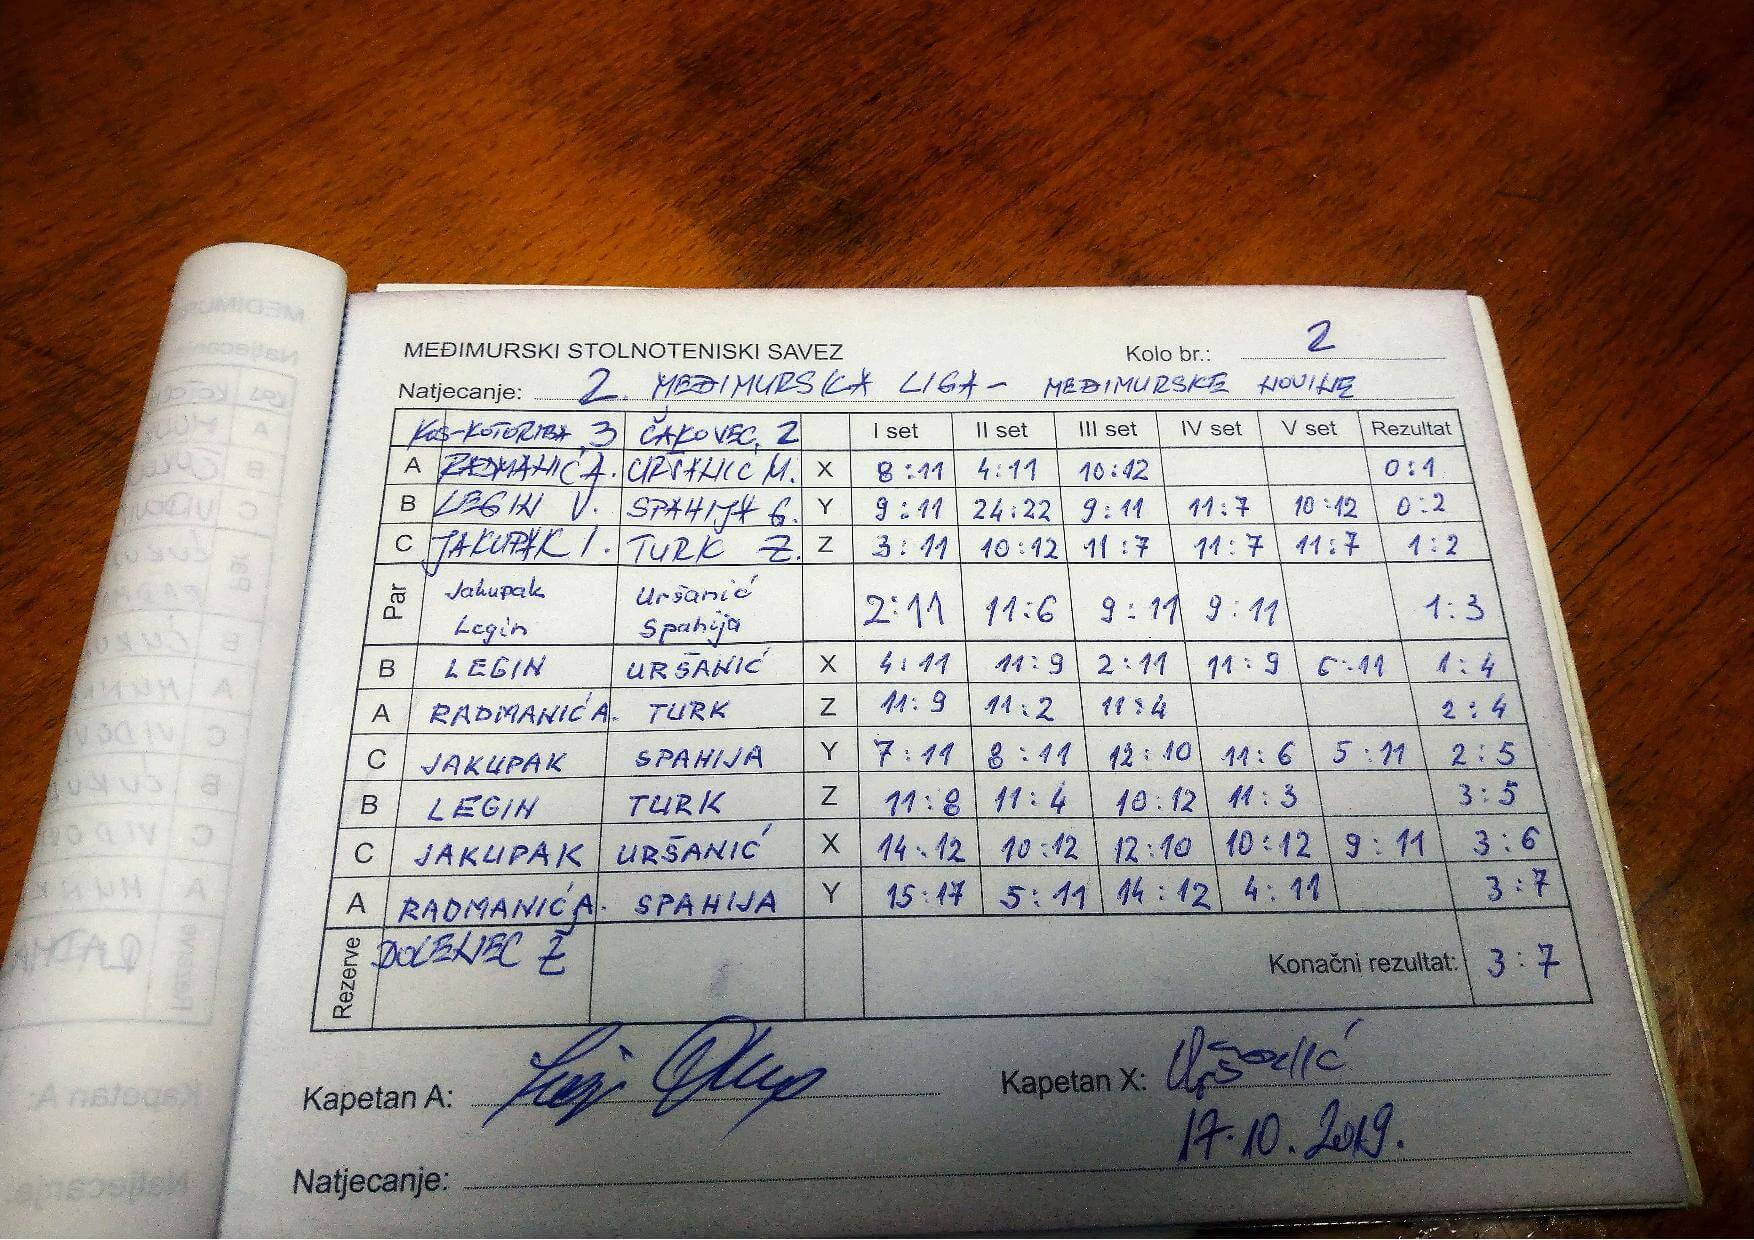 MEĐIMURSKI STOLNOTENISKI SAVEZ Kolo br.: 2
Natjecanje: 2. MEĐIMURSKA LIGA - MEĐIMURSKE NOVINE
KOS-KOTORIBA 3 ČAKOVEC 2 I set II set III set IV set V set Rezultat
A RADMANIĆ A. URŠANIĆ M. X 8:11 4:11 10:12 0:1
B LEGIN V. SPAHIJA G. Y 9:11 24:22 9:11 11:7 10:12 0:2
C JAKUPAK I. TURK Z. Z 3:11 10:12 11:7 11:7 11:7 1:2
Par Jakupak Uršanić 2:11 11:6 9:11 9:11 1:3
Legin Spahija
B LEGIN URŠANIĆ X 4:11 11:9 2:11 11:9 6:11 1:4
A RADMANIĆ A. TURK Z 11:9 11:2 11:4 2:4
C JAKUPAK SPAHIJA Y 7:11 8:11 12:10 11:6 5:11 2:5
B LEGIN TURK Z 11:8 11:4 10:12 11:3 3:5
C JAKUPAK URŠANIĆ X 14:12 10:12 12:10 10:12 9:11 3:6
A RADMANIĆ A. SPAHIJA Y 15:17 5:11 14:12 4:11 3:7
Rezerve DOLENEC Z Konačni rezultat: 3:7
Kapetan A: Kapetan X: Uršanić
17.10.2019.
Natjecanje: